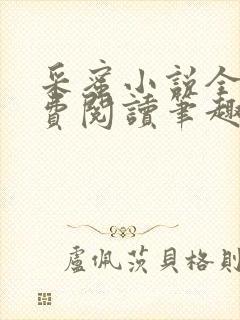 采蜜小說全
費閱讀筆趣
盧佩茨貝格則